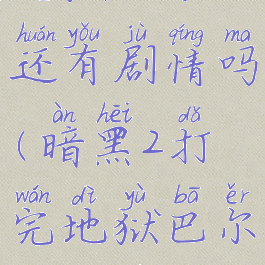 huán yǒu jù qíng ma
还有剧情吗
àn hēi dǎ
(暗黑2打
wán dì yù bā ěr
完地狱巴尔